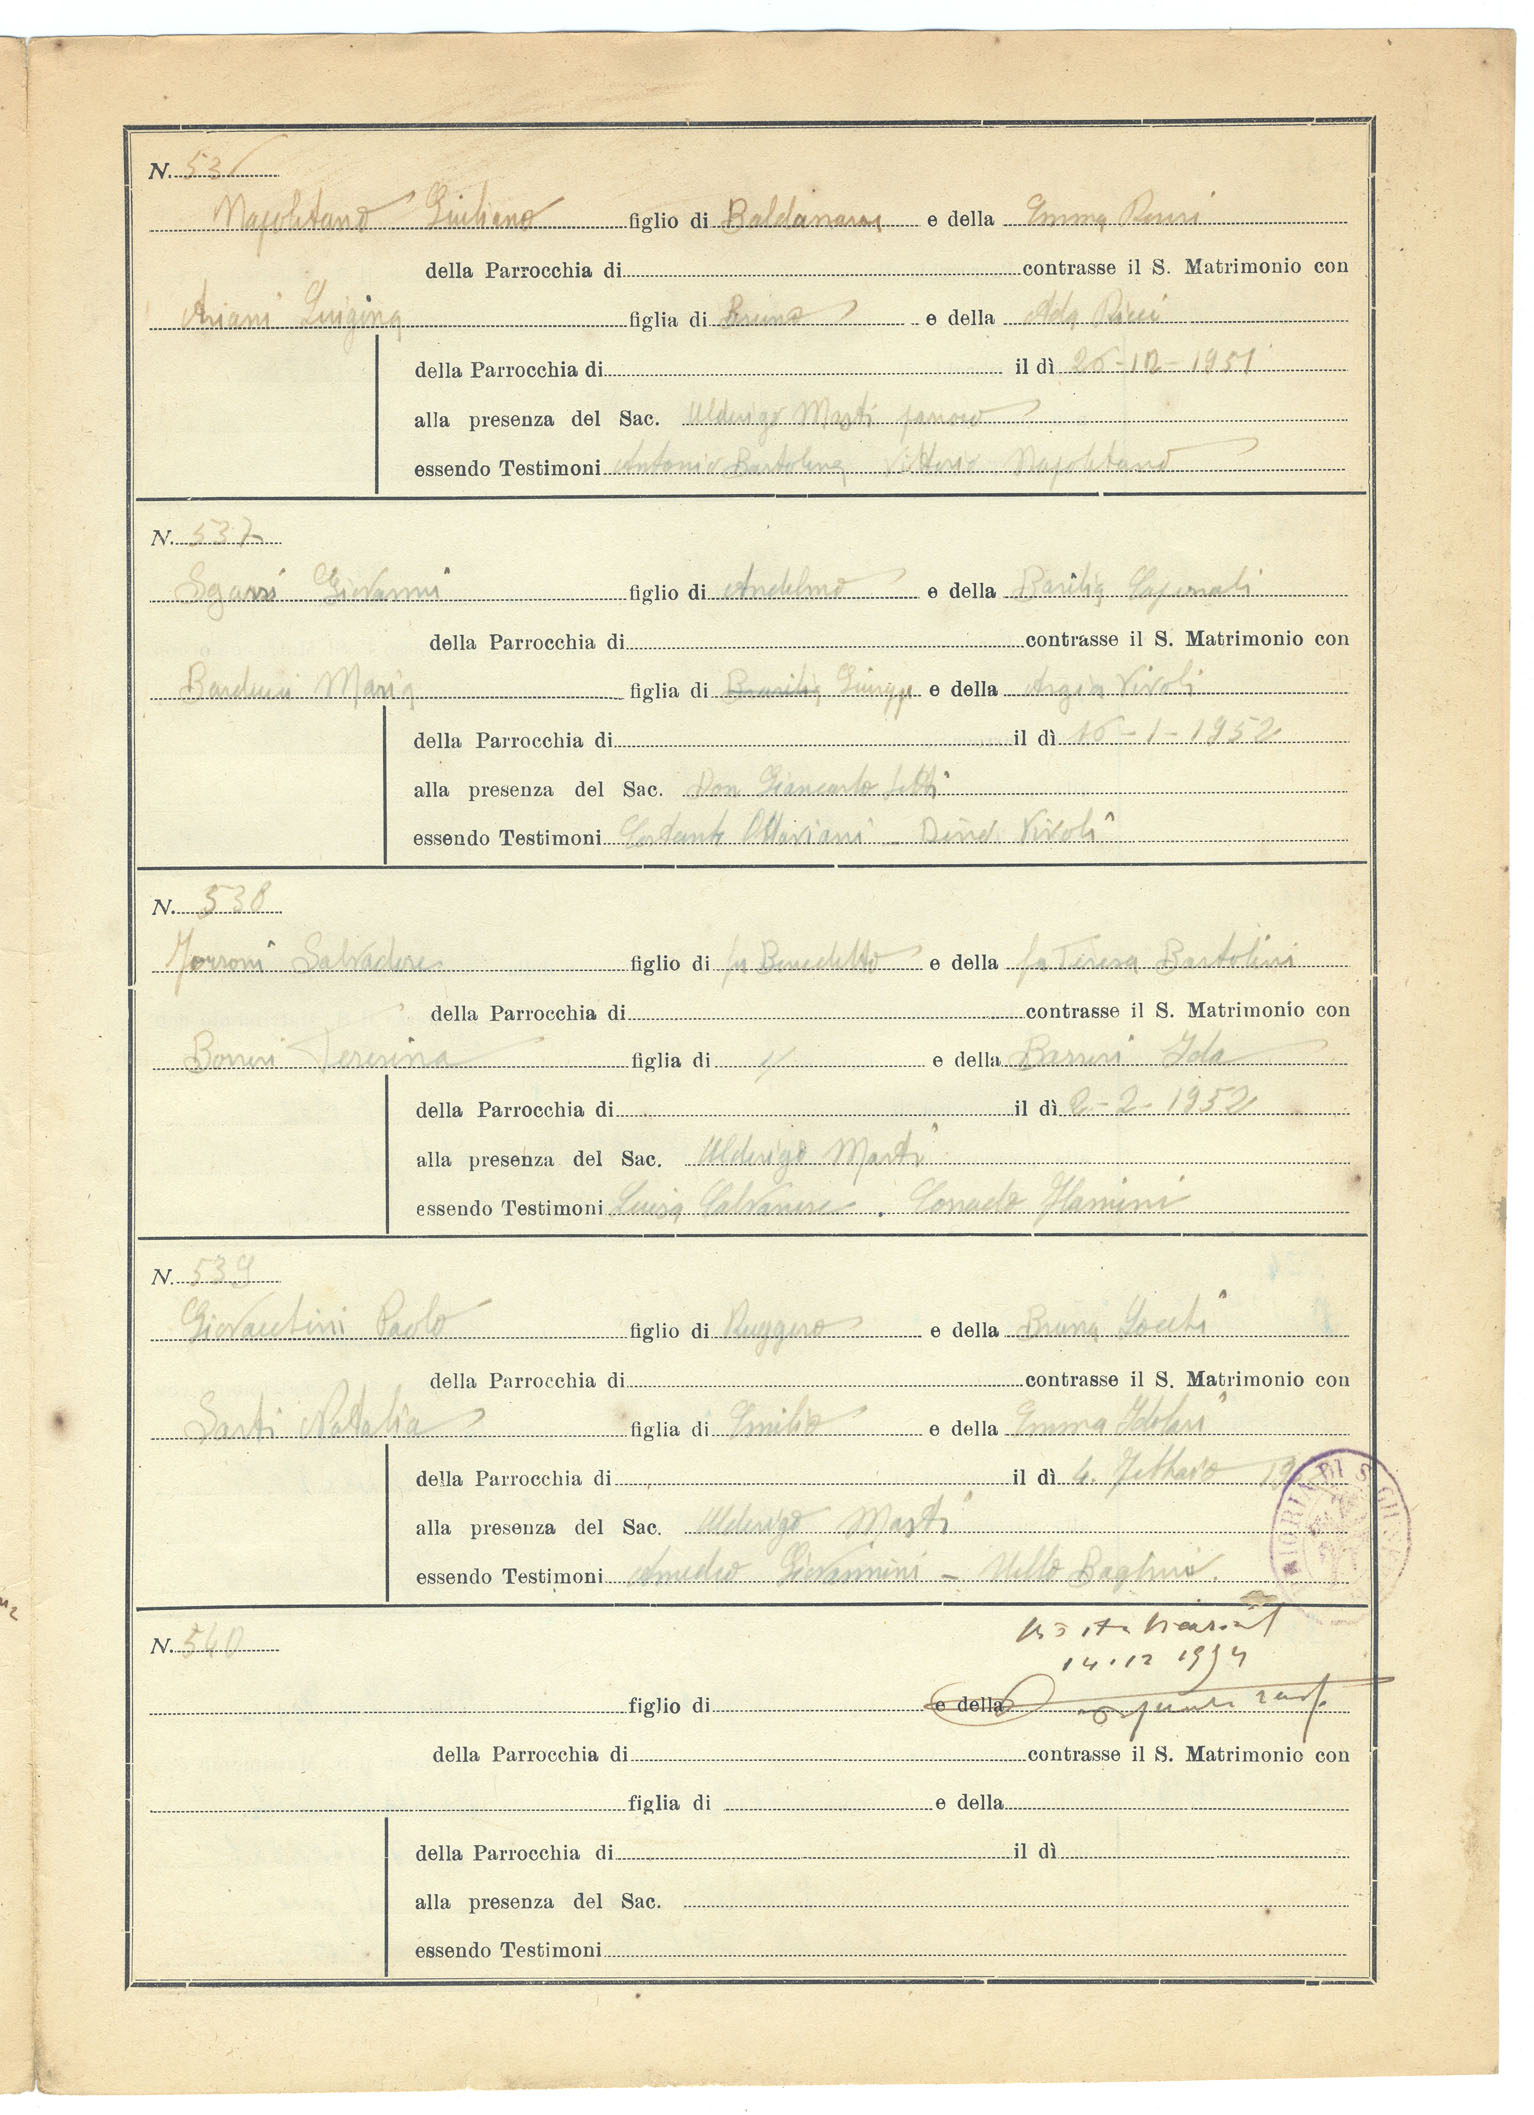 N. 536
Napolitano Giuliano figlio di Baldassarre e della Emma
della Parrocchia di contrasse il S. Matrimonio con
Ariani Luigina figlia di Bruno e della Ada Ricci
della Parrocchia di il dì 26-12-1951
alla presenza del Sac. Ulderigo Masti parroco
essendo Testimoni Antonio Bartolena Vittorio Napolitano
N. 537
Sgarri Giovanni figlio di e della
della Parrocchia di contrasse il S. Matrimonio con
Barducci Maria figlia di Giuseppe e della Argia Vivoli
della Parrocchia di il dì 16-1-1952
alla presenza del Sac. Don Giancarlo Setti
essendo Testimoni Costante Ottaviani - Dino Vivoli
N. 538
Salvadore figlio di fu Benedetto e della fu Teresa Bartolini
della Parrocchia di contrasse il S. Matrimonio con
Teresina figlia di e della Ida
della Parrocchia di il dì 2-2-1952
alla presenza del Sac. Ulderigo Masti
essendo Testimoni Luisa Calvanese . Corrado Flamini
N. 539
Giovacchini Paolo figlio di Ruggero e della Bruna Socchi
della Parrocchia di contrasse il S. Matrimonio con
Sarti Natalia figlia di Emilio e della Emma
della Parrocchia di il dì 4. Febbraio 19
alla presenza del Sac. Ulderigo Masti
essendo Testimoni Amedeo Giovannini - Nello
N. 540
14.12 1954
figlio di e della
della Parrocchia di contrasse il S. Matrimonio con
figlia di e della
della Parrocchia di il dì
alla presenza del Sac.
essendo Testimoni